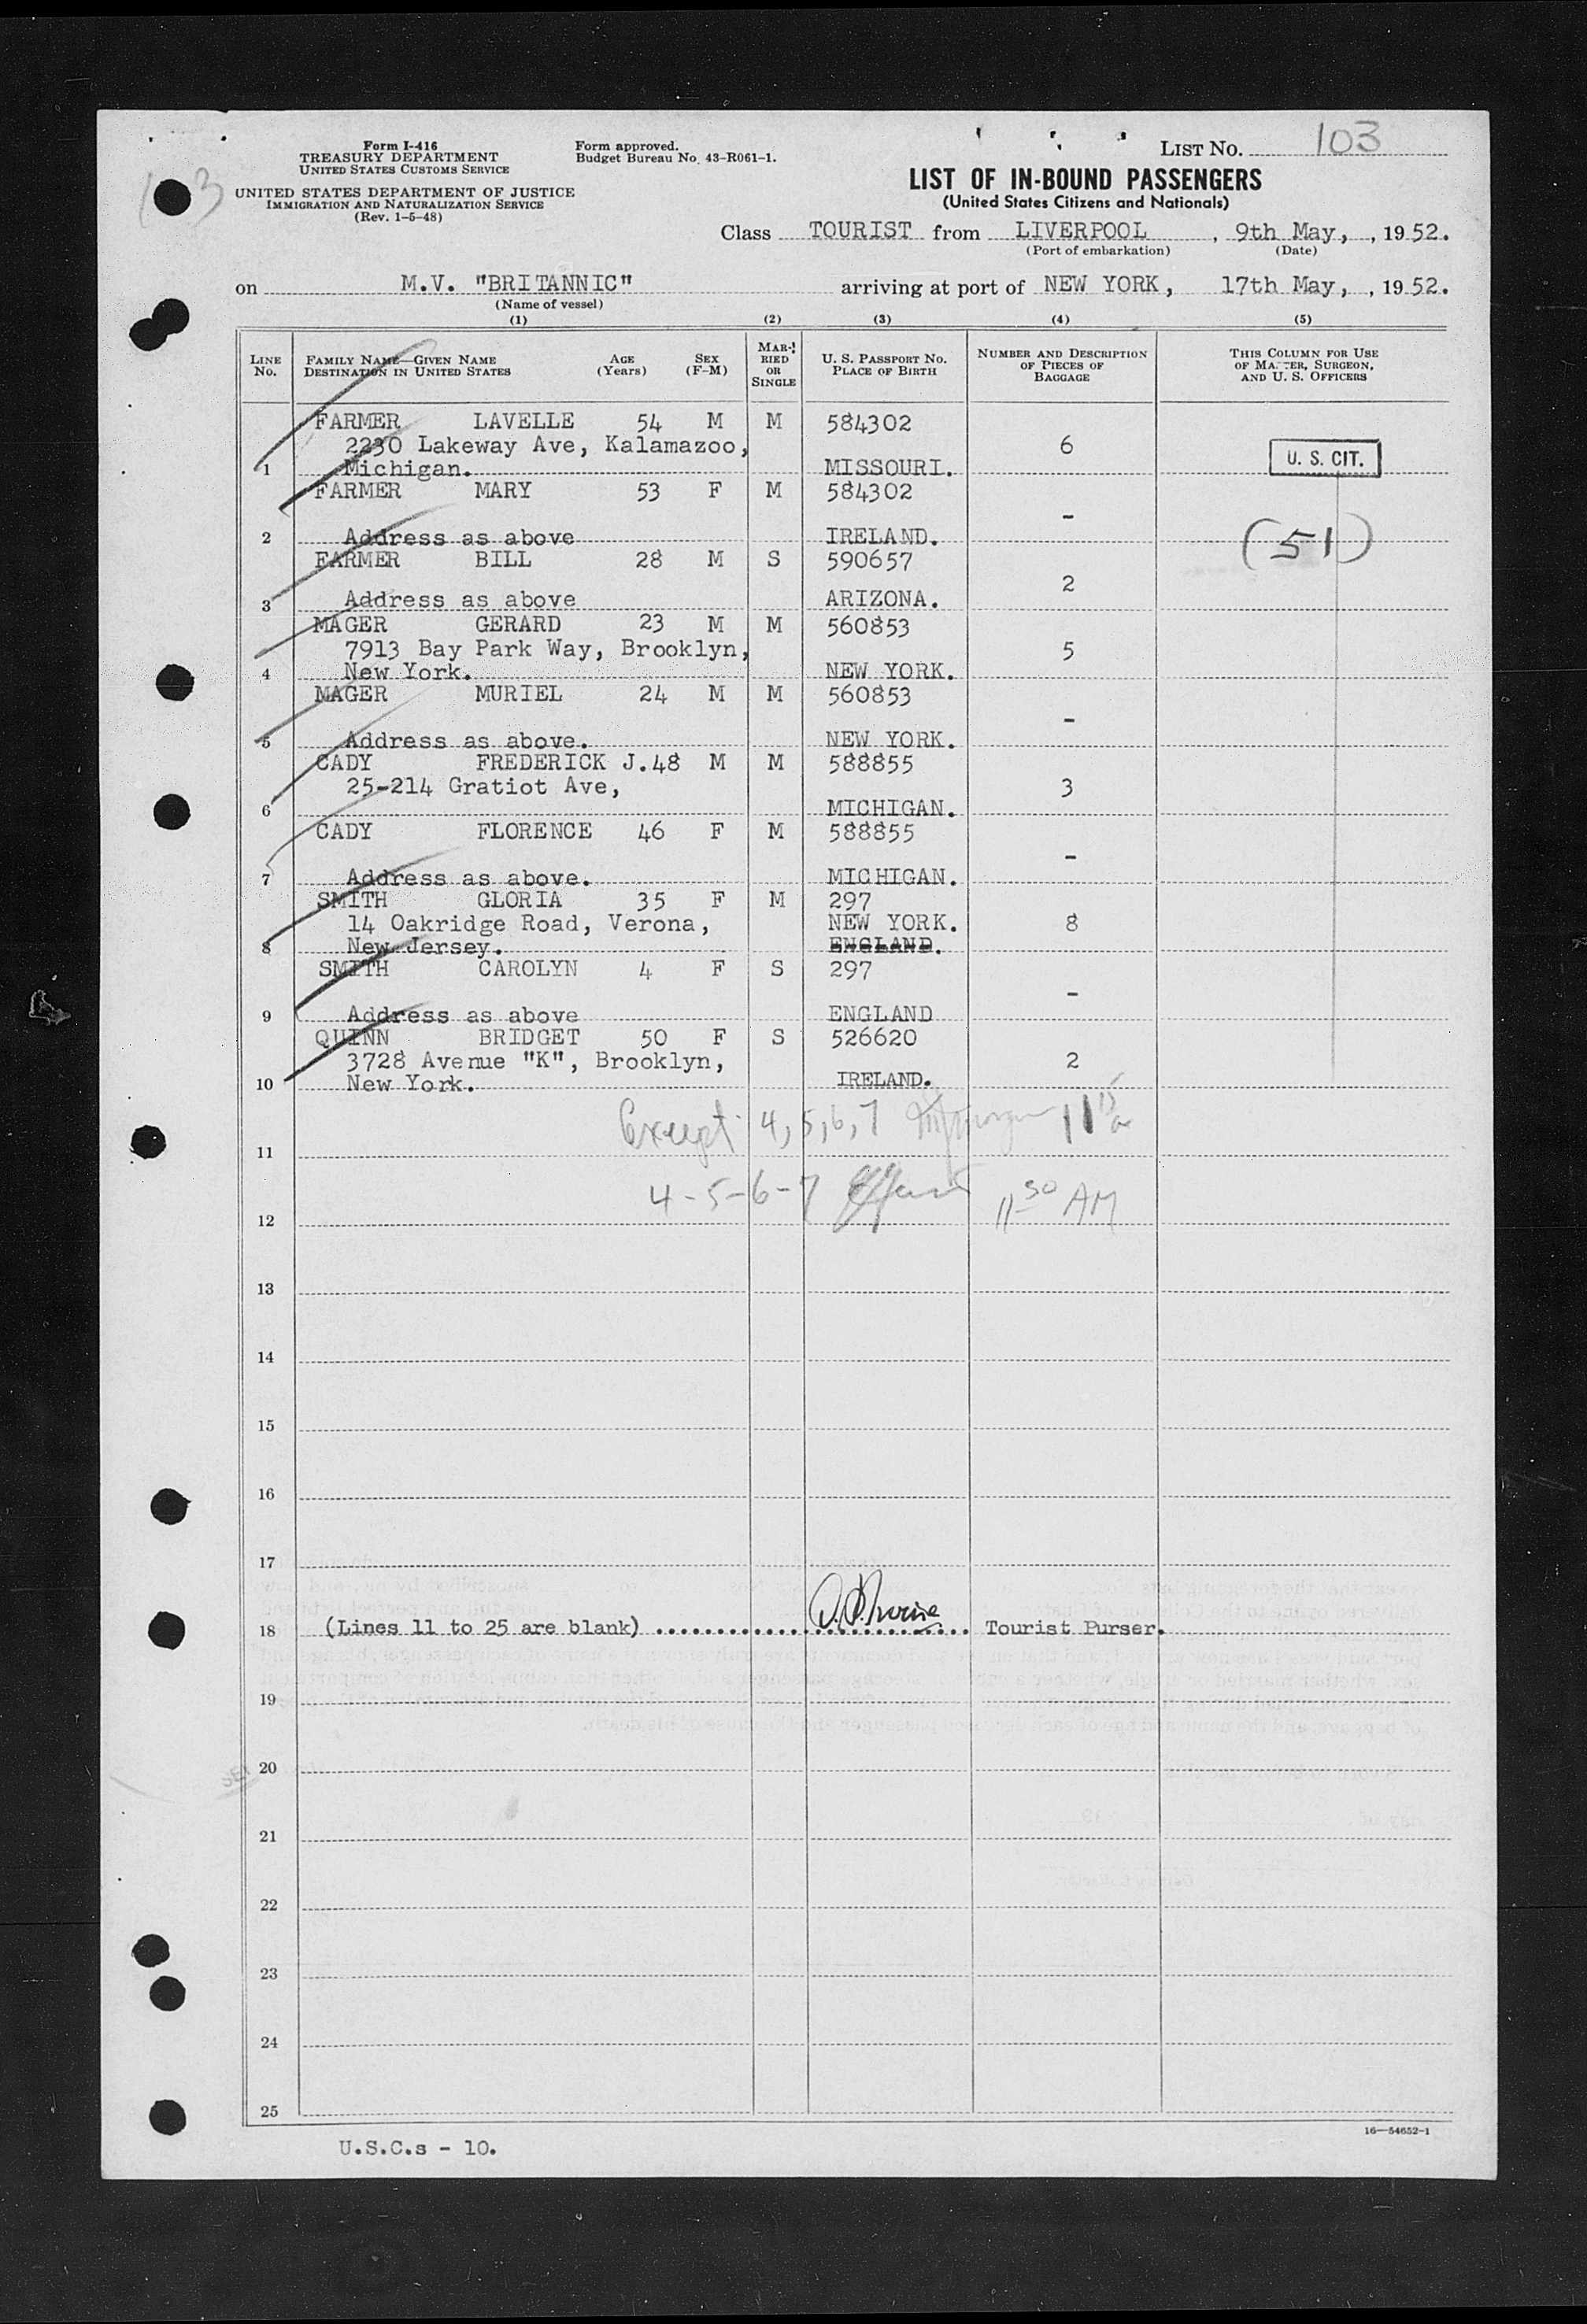 103
Form I-416
TREASURY DEPARTMENT
UNITED STATES CUSTOMS SERVICE
UNITED STATES DEPARTMENT OF JUSTICE
IMMIGRATION AND NATURALIZATION SERVICE
(Rev. 1-5-48)
Form approved.
Budget Bureau No. 43-R061-1.
LIST NO. 103
LIST OF IN-BOUND PASSENGERS
(United States Citizens and Nationals)
Class TOURIST from LIVERPOOL, 9th May, , 1952.
(Port of embarkation) (Date)
on M.V. "BRITANNIC" arriving at port of NEW YORK, 17th May, , 1952.
(Name of vessel)
(1) (2) (3) (4) (5)
LINE NO.
FAMILY NAME—GIVEN NAME AGE SEX
DESTINATION IN UNITED STATES (Years) (F-M)
MARRIED OR SINGLE
U. S. PASSPORT NO.
PLACE OF BIRTH
NUMBER AND DESCRIPTION
OF PIECES OF
BAGGAGE
THIS COLUMN FOR USE
OF MASTER, SURGEON,
AND U. S. OFFICERS
FARMER LAVELLE 54 M M 584302
2230 Lakeway Ave, Kalamazoo, 6
1 Michigan. MISSOURI. U. S. CIT.
FARMER MARY 53 F M 584302
-
2 Address as above IRELAND. (51)
FARMER BILL 28 M S 590657
2
3 Address as above ARIZONA.
MAGER GERARD 23 M M 560853
7913 Bay Park Way, Brooklyn, 5
4 New York. NEW YORK.
MAGER MURIEL 24 M M 560853
-
5 Address as above. NEW YORK.
CADY FREDERICK J.48 M M 588855
25-214 Gratiot Ave, 3
6 MICHIGAN.
CADY FLORENCE 46 F M 588855
-
7 Address as above. MICHIGAN.
SMITH GLORIA 35 F M 297
14 Oakridge Road, Verona, NEW YORK. 8
8 New Jersey. ENGLAND.
SMITH CAROLYN 4 F S 297
-
9 Address as above ENGLAND
QUINN BRIDGET 50 F S 526620
3728 Avenue "K", Brooklyn, 2
10 New York. IRELAND.
Except 4, 5, 6, 7 11 15
11
4-5-6-7 11 30 AM
12
13
14
15
16
17
18 (Lines 11 to 25 are blank) .............................. Tourist Purser.
19
20
21
22
23
24
25
16—54652-1
U.S.C.s - 10.